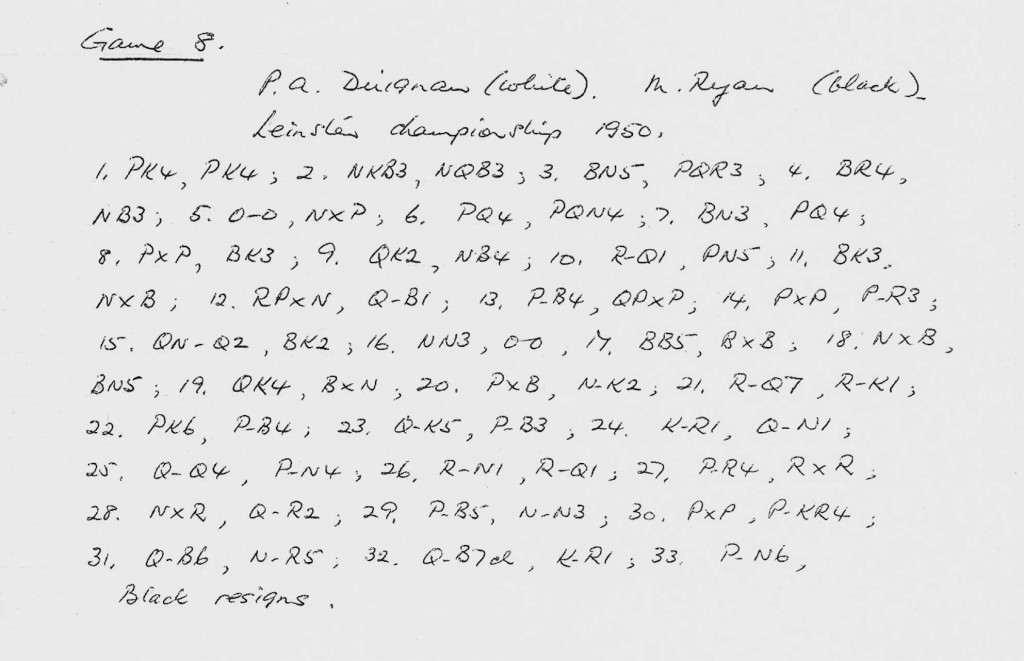 Game 8.
P.A. Duignan (white). M. Ryan (black).
Leinster championship 1950.
1. PK4, PK4; 2. NKB3, NQB3; 3. BN5, PQR3; 4. BR4,
NB3; 5. 0-0, NxP; 6. PQ4, PQN4; 7. BN3, PQ4;
8. PxP, BK3; 9. QK2, NB4; 10. R-Q1, PN5; 11. BK3,
NxB; 12. RPxN, Q-B1; 13. P-B4, QPxP; 14. PxP, P-R3;
15. QN-Q2, BK2; 16. NN3, 0-0, 17. BB5, BxB; 18. NxB,
BN5; 19. QK4, BxN; 20. PxB, N-K2; 21. R-Q7, R-K1;
22. PK6, P-B4; 23. Q-K5, P-B3; 24. K-R1, Q-N1;
25. Q-Q4, P-N4; 26. R-N1, R-Q1; 27. P-R4, RxR;
28. NxR, Q-R2; 29. P-B5, N-N3; 30. PxP, P-KR4;
31. Q-B6, N-R5; 32. Q-B7ch, K-R1; 33. P-N6,
Black resigns.